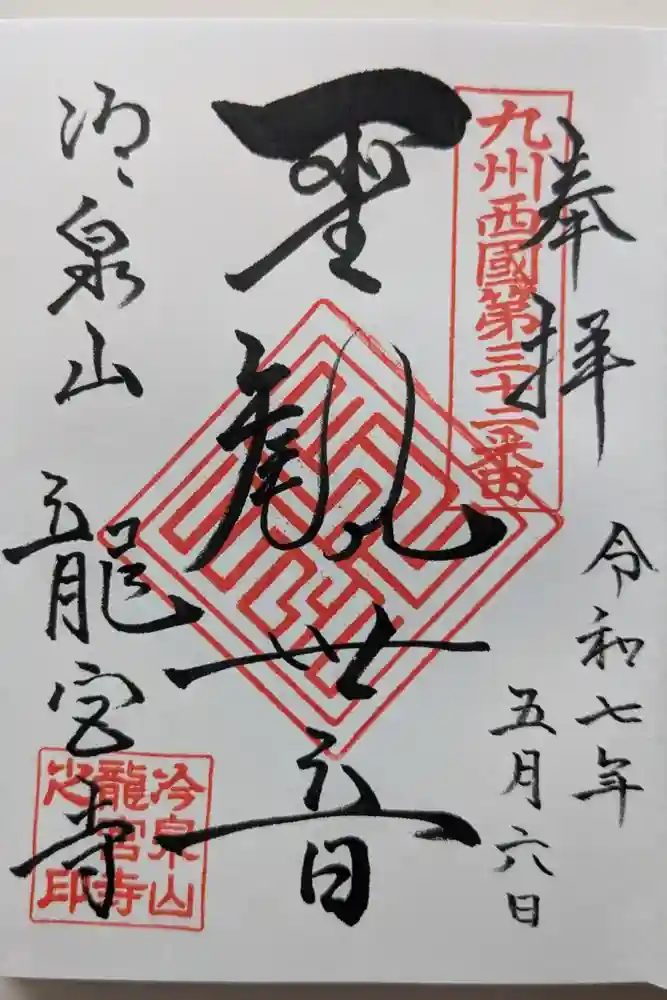 奉拝
令和七年
五月六日
九州西國第三十二番
聖觀世音
冷泉山
龍宮寺
冷泉山
龍宮寺
之印